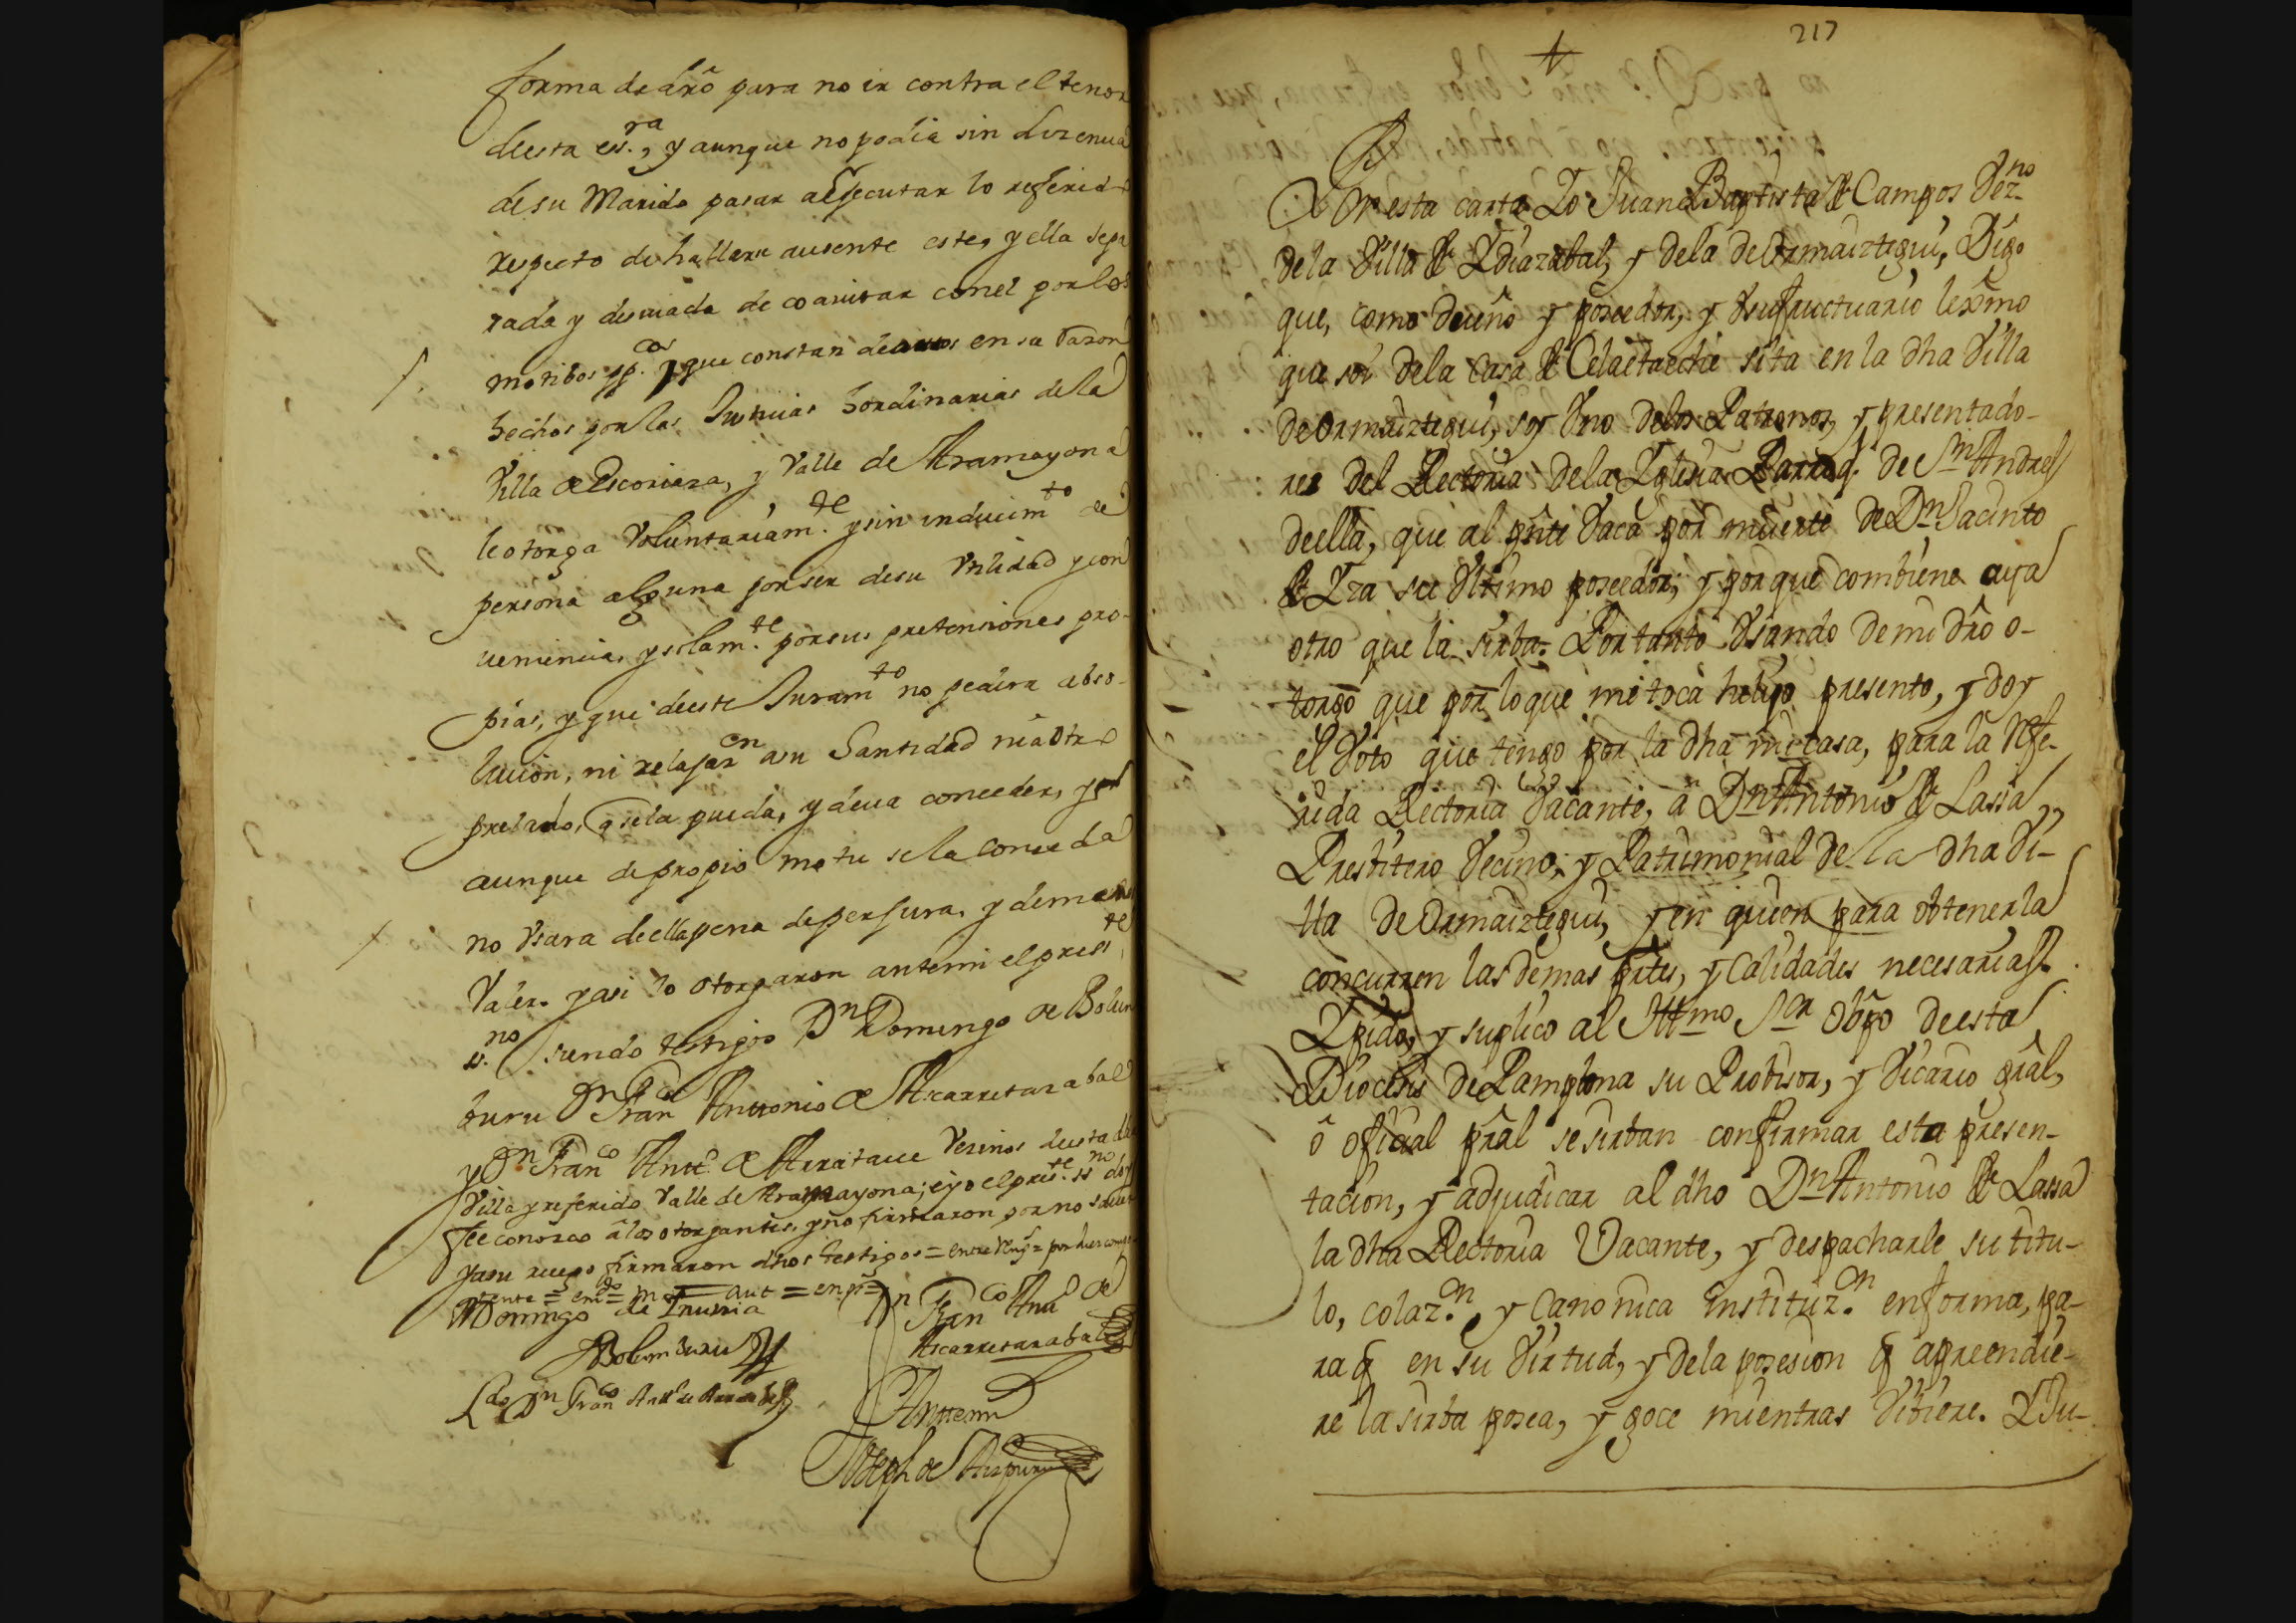 forma de dro para no ir contra el tenor
desta essra, y aunque no podia sin lizencia
de su Marido pasar a efecutar lo referido
respecto de hallarse ausente este, y ella sepa
rada y desuiada de coauitar con el por los
motibos ppcos que constan de autos en su razon
hechos por las Justicias hordinarias de la
Villa de Escoriaza, y Valle de Aramayona
le otorga Voluntariamte y sin inducimto de
persona alguna por ser de su Vtilidad y con
ueniencia, y solamte por sus pretensiones pro-
pias, y que deeste Juramto no pedira abso-
lucion, ni relajaxcn a su Santidad ni a otro
prelado, q se la pueda, y deua conceder, y
aunque de propio motu se la conceda
no Vsara de ella pena de perjura, y de menos
Valer. y asi lo otorgaron ante mi el preste
ss.no siendo testigos Dn Domingo de Bolin
buru Dn Franco Anttonio de Ascarretazabal
y Dn Franco Antto de Arratauee Vecinos desta dha
Villa y referido Valle de Aramayona; e yo el preste ssno doy
fee conozco a los otorgantes, y no firmaron por no sauer
y a su ruego firmaron dhos testigos = entre Rengs = por hauer comp
Domingo de Inurria
Dn Franco Antto de
Bolinburu
Ascarretazabal
Ldo Dn Franco
Antte mi
Joseph de Aizpuru
217
Por esta carta Yo Juan Baptista de Campos Vezno
de la Villa de Ydiazabal, y de la de Ormaiztegui, Digo
que, como dueño y poseedor, y Vsufructuario lexmo
que soi de la casa de Celaetaeche sita en la dha Villa
de Ormaiztegui, soy Vno de los Patronos, y presentado-
res del Rectoria de la Yglesia Parroql. de Sn Andres
de ella, que al pnte Vaca por muerte de Dn Jacinto
de Yza su Vltimo poseedor; y porque combiene aya
otro que la sirba. Por tanto Vsando de mi dro o-
torgo que por lo que me toca helijo presento, y doy
el Voto que tengo por la dha mi casa, para la Refe-
rida Rectoria Vacante, a Dn Antonio de Lassa,
Presbitero Vecino, y Patrimonial de la dha Vi-
lla de Ormaiztegui, y en quien para obtenerla
concurren las demas partes, y Calidades necesarias.
Y pido, y suplico al Illmo Sor Obpo de esta
Diocesis de Pamplona su Probisor, y Vicario gral,
o oficial pral se sirban confirmar esta presen-
tacion, y adjudicar al dho Dn Antonio de Lassa
la dha Rectoria Vacante, y despacharle su titu-
lo, colaz.on y Canonica instituz.on en forma, pa-
ra q en su Virtud, y de la posesion q apreendie-
re la sirba posea, y goce mientras Vibiere. Y Ju-